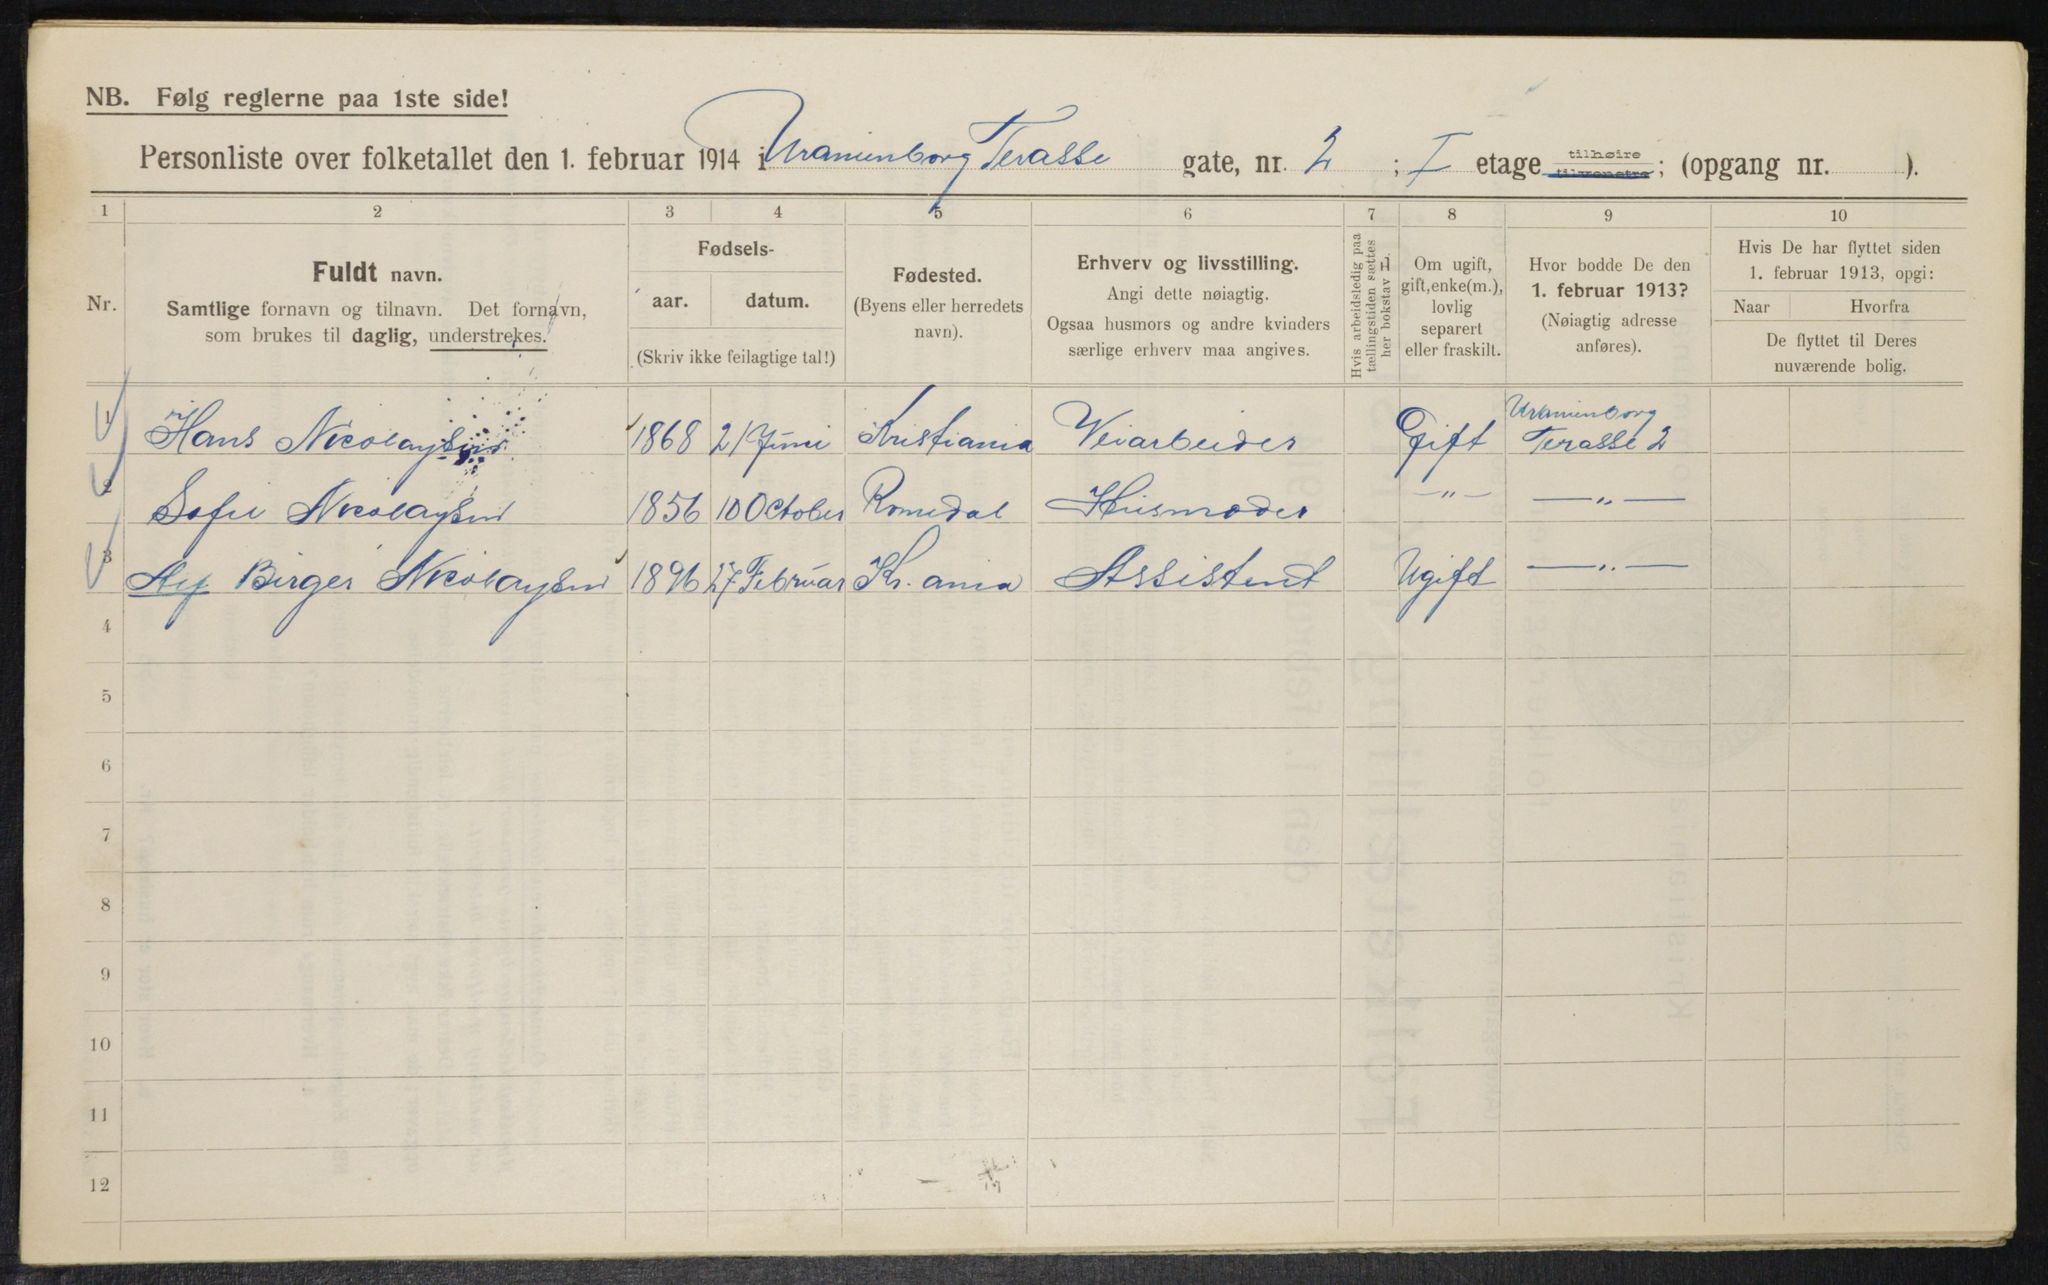 NB. Følg reglerne paa 1ste side!
Personliste over folketallet den 1. februar 1914 i Uranienborg Terasse gate, nr. 2 ; I etage tilhøire tilvenstre; (opgang nr. ).
1 2 3 4 5 6 7 8 9 10
Nr.
Fuldt navn.
Samtlige fornavn og tilnavn. Det fornavn,
som brukes til daglig, understrekes.
Fødsels-
aar. datum.
(Skriv ikke feilagtige tal!)
Fødested.
(Byens eller herredets
navn).
Erhverv og livsstilling.
Angi dette nøiagtig.
Ogsaa husmors og andre kvinders
særlige erhverv maa angives.
Hvis arbeidsledig paa
tællingstiden sættes
her bokstav L
Om ugift,
gift, enke(m.),
lovlig
separert
eller fraskilt.
Hvor bodde De den
1. februar 1913?
(Nøiagtig adresse
anføres).
Hvis De har flyttet siden
1. februar 1913, opgi:
Naar Hvorfra
De flyttet til Deres
nuværende bolig.
1 Hans Nicolaysen 1868 21 Juni Kristiania Veiarbeider Gift Uranienborg Terasse 2
2 Sofie Nicolaysen 1856 10 October Romedal Husmoder —"— —"—
3 Alf Birger Nicolaysen 1896 27 Februar Kr. ania Assistent Ugift —"—
4
5
6
7
8
9
10
11
12